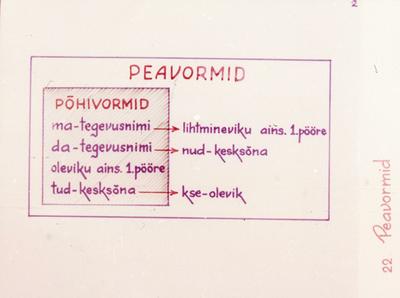 2
PEAVORMID
PÕHIVORMID
ma-tegevusnimi → lihtmineviku ains. 1.pööre
da-tegevusnimi → nud-kesksõna
oleviku ains. 1.pööre
tud-kesksõna → kse-olevik
22 Peavormid